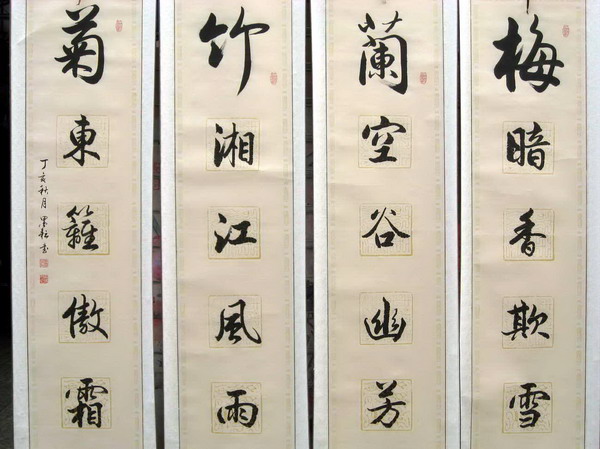 梅
暗香欺雪
蘭
空谷幽芳
竹
湘江風雨
菊
東籬傲霜
丁亥秋月